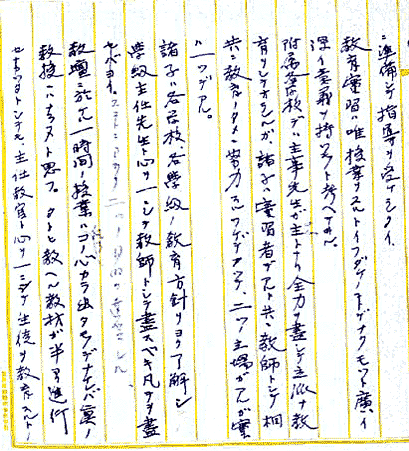 ニ準備シテ指導ヲ受ケラレタイ。
教育実習ハ唯授業ヲスルトイフダケノ事デナクモット廣イ
深イ意義ヲ持ツモノト考ヘラレル。
附属各校デハ主事先生ガ主トナリ全力ヲ盡シテ立派ナ教
育ヲシテオラレルガ、諸子ハ実習者デアルト共ニ教師トシテ相
共ニ教育ノタメニ努力スルワケデアッテ、二ツノ立場ガアルガ実ハ
一ツデアル。
諸子ハ各学校、各学級ノ教育方針ヲヨク了解シ
学級主任先生ト心ヲ一ニシテ教師トシテ盡スベキ凡テヲ盡
セバヨイ。
教壇ニ於ケル一時間ノ授業ハコノ心カラ出タモノデナケレバ真ノ
教授ニハナラヌト思フ。タトヘ教ヘル教材ガ半分進行
セナカッタトシテモ、主任教官ト心ヲ一ニシテ生徒ヲ教育スルトノ